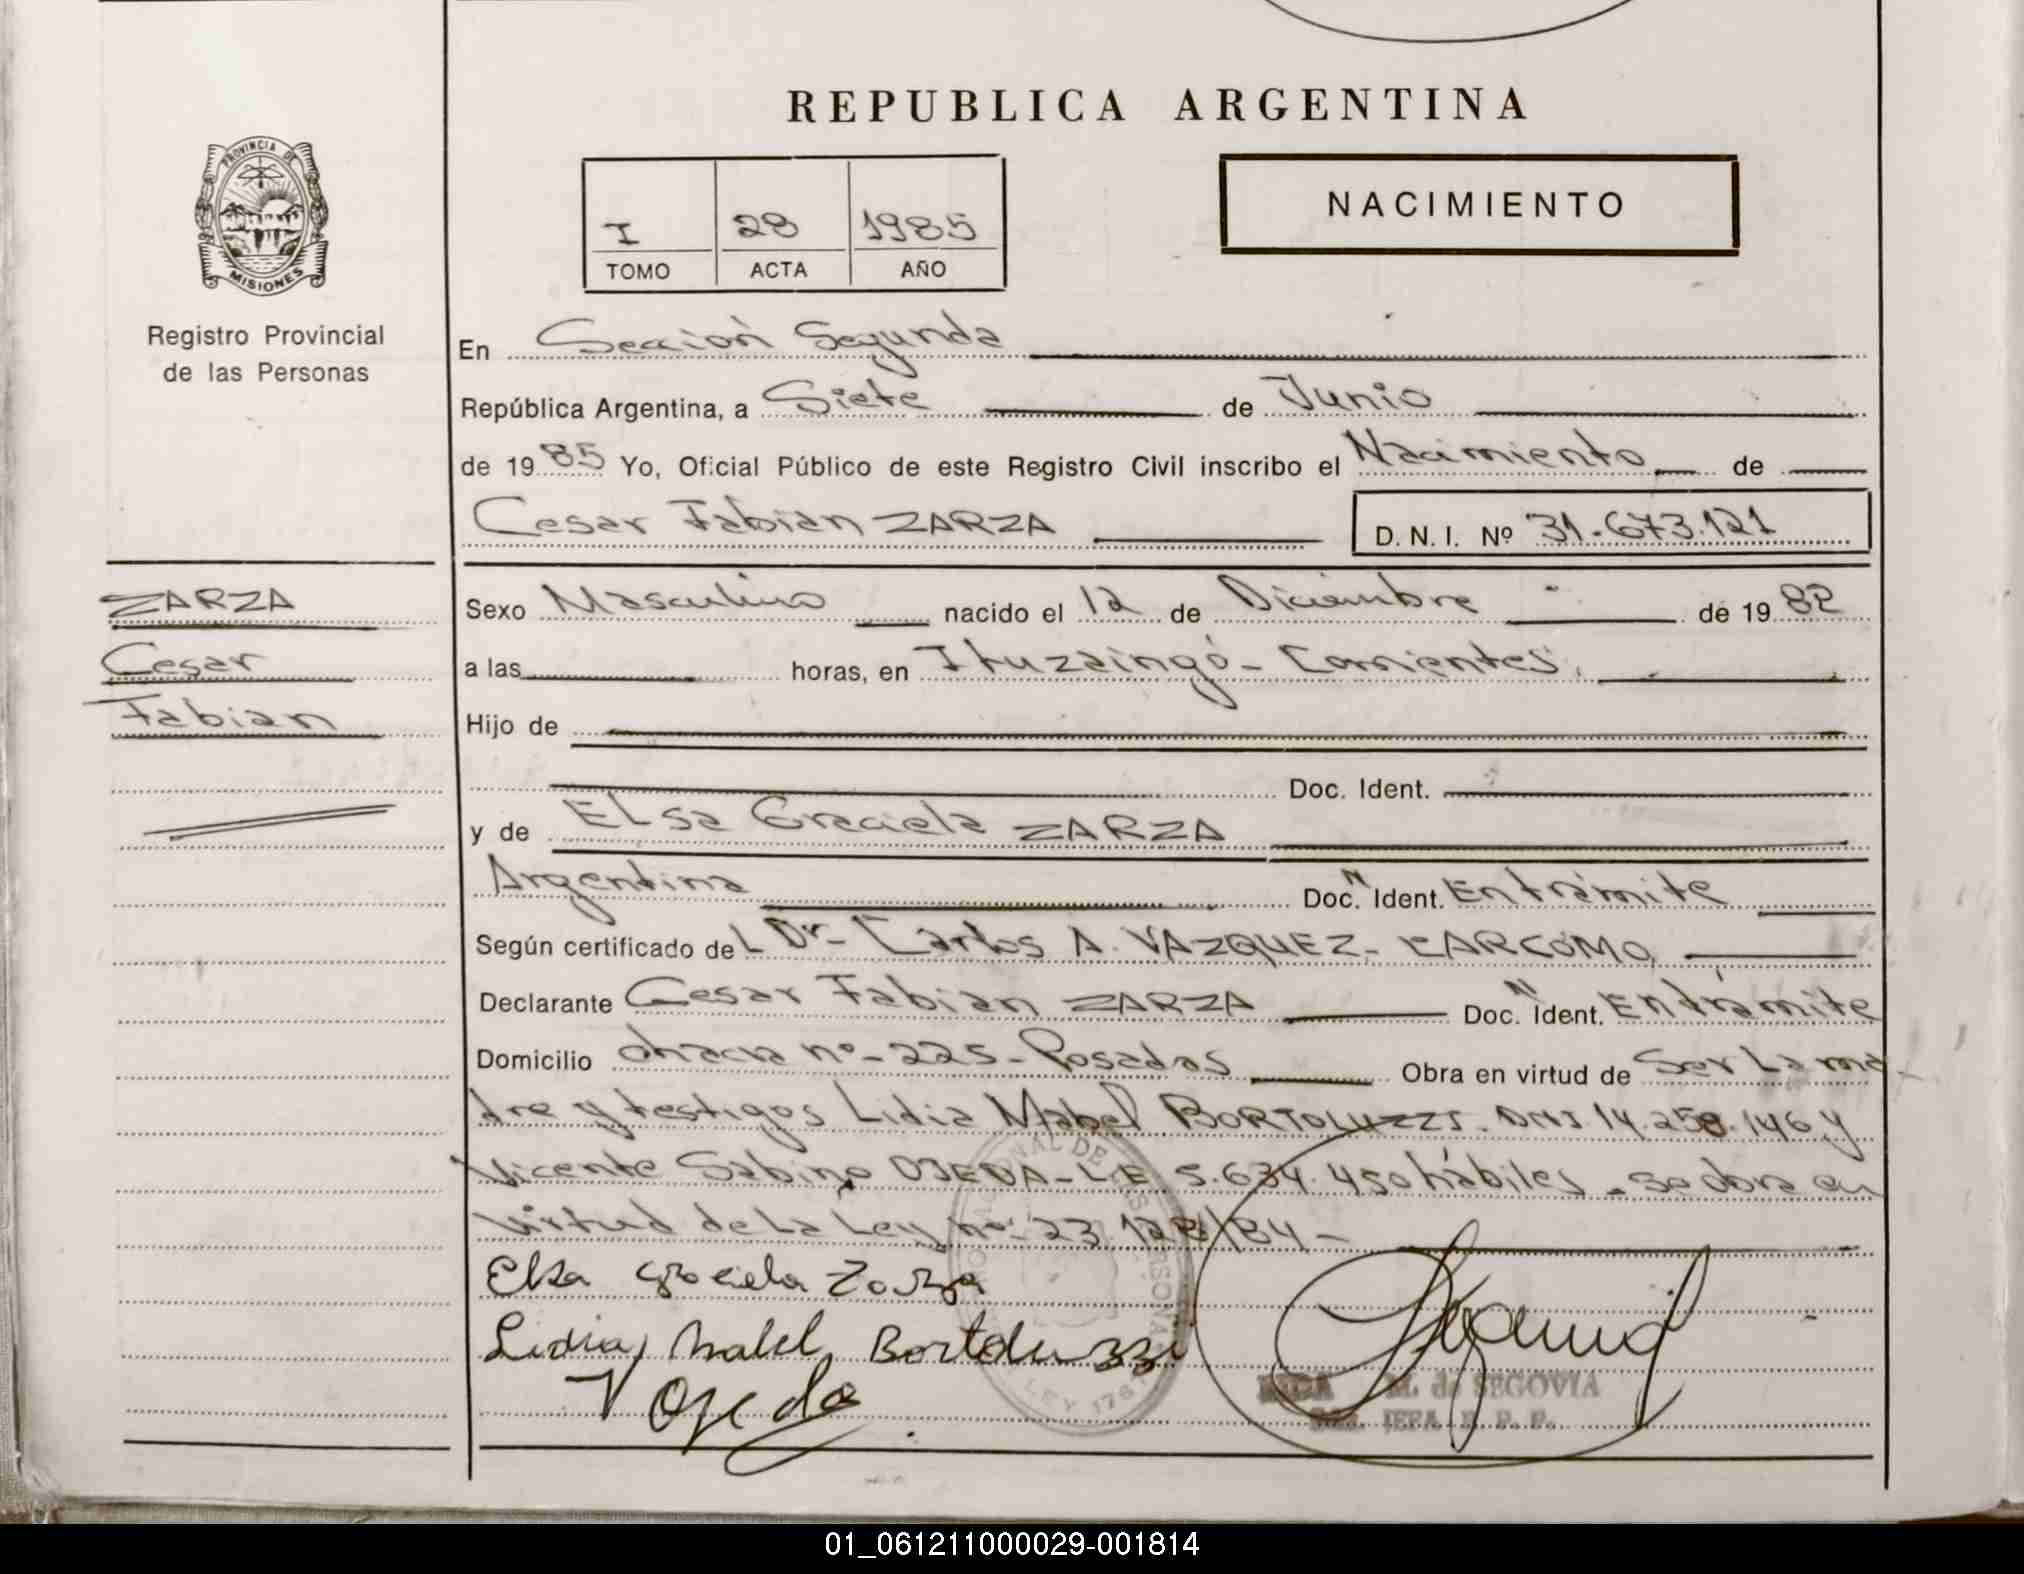 REPUBLICA ARGENTINA
PROVINCIA DE
MISIONES
Registro Provincial
de las Personas
I 28 1985
TOMO ACTA AÑO
NACIMIENTO
En Sección Segunda
República Argentina, a Siete de Junio
de 1985 Yo, Oficial Público de este Registro Civil inscribo el Nacimiento de
Cesar Fabian ZARZA D. N. I. Nº 31.673.121
ZARZA
Cesar
Fabian
Sexo Masculino nacido el 12 de Diciembre de 1982
a las horas, en Ituzaingó - Corrientes.
Hijo de
Doc. Ident.
y de ELsa Graciela ZARZA
Argentina Doc. N Ident. En trámite
Según certificado del Dr. Carlos A. VAZQUEZ-
Declarante Cesar Fabian ZARZA Doc. N Ident. En trámite
Domicilio chacra nº-225-Posadas Obra en virtud de Ser La ma
dre y testigos Lidia Mabel BORTOLUZZI. DNI 14.258.146 y
Vicente Sabino OJEDA-L.E. 5.634.450 hábiles - se obra en
virtud de La Ley nº 23.128/84-
Elsa Graciela Zarza
Lidia Mabel Bortoluzzi
V Ojeda
M. de SEGOVIA
JEFA R. P. P.
01_061211000029-001814